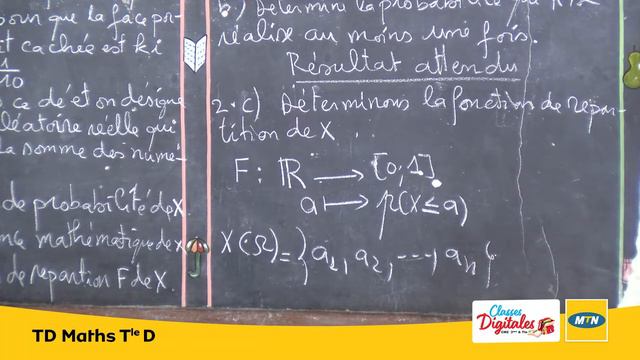 pour que la face por-
et cachée est ki
1/10
ce dé et on désigne
aléatoire réelle qui
la somme des numé-
de probabilité de X
mathématique de X
de repartion F de X.
b) Determin la probabilité que
réalise au moins une fois.
Résultat attendu
2.c) Déterminons la fonction de repar-
tition de X...
F: ℝ → [0,1]
a ↦ p(X ≤ a)
X(Ω) = {a1, a2, ---, an}
TD Maths Tle D
Classes
Digitales
MTN